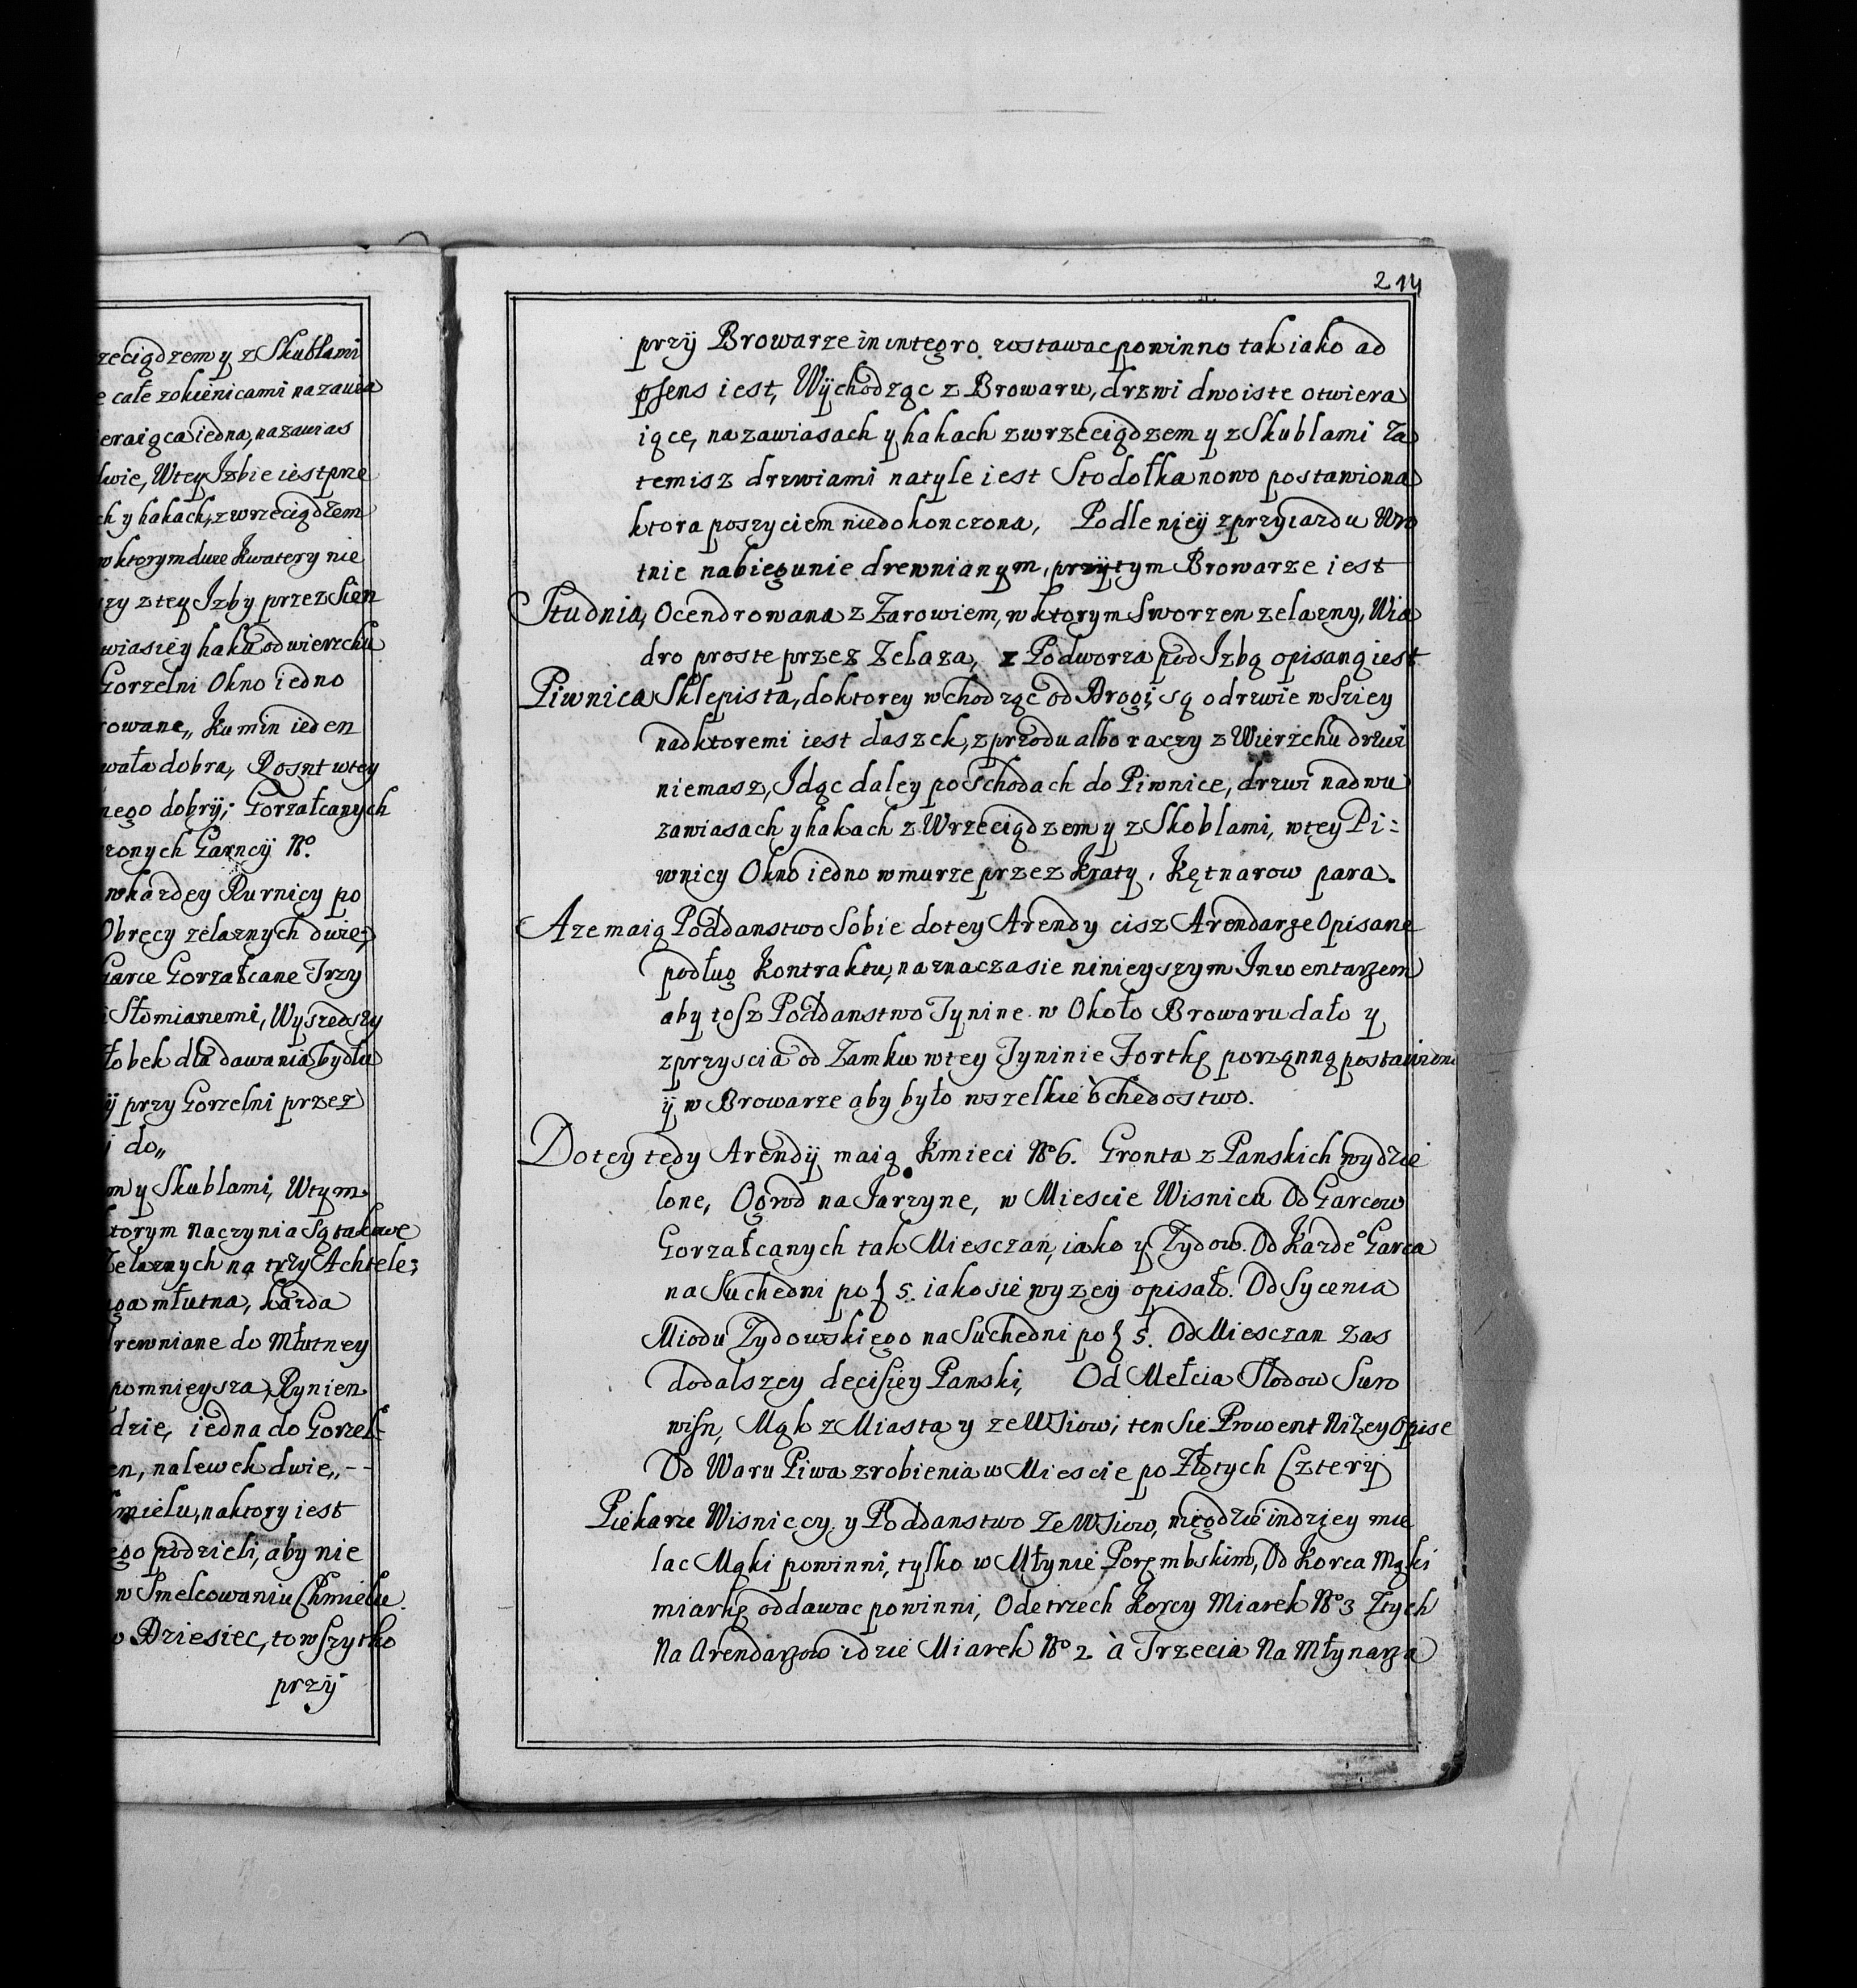 zeciądzem y z Skublami
e całe zokienicami nazawia
eraiąca iedna, nazawias
dwie, Wtey Izbie iest prze
ch y hakach, zwrzeciądzem
w ktorym dwie Kwatery nie
rzy z tey Izby przez Sien
wiasiey haku od wierzchu
Gorzelni Okno iedno
rowane,, Kumin ieden
wała dobra, Roszt wtey
nego dobrÿ; Gorzałcanych
zonych Garncÿ No.
wkazdey Rurnicy po
Obręcy zelaznych dwie,
Garce Gorzałcane Trzy
i Słomianemi, Wyszedszy
łobek dla dawania bydłu
ÿ przy Gorzelni przez
i do,,
m y Skublami, Wtym
ktorym naczynia są takowe
Zelaznych na trzy Achtele;
uga młutna, kazda
drewniane do Młotney
pomnieysza, Rynien
dzie, iedna do Gorzel:
en, nalewek dwie,, --
hmielu, naktory iest
ego podzieli, aby nie
w Smelcowaniu Chmielu.
o Dziesiec, to wszytko
przÿ
214
przÿ Browarze in integro zostawac powinno tak iako ad
psens iest, Wÿchodząc z Browaru, drzwi dwoiste otwiera
iące, na zawiasach y hakach zwrzeciądzem y z Skublami Za
temisz drzwiami natyle iest Stodołka nowo postawiona
ktora poszyciem niedokonczona, Podle nieÿ z przyiazdu Wro
tnie nabiegunie drewnianym, przÿtym Browarze iest
Studnia, Ocendrowana z Zarowiem, w ktorym Sworzen zelazny, Wia
dro proste przez Zelaza, z Podworza pod Izbą opisaną iest
Piwnica Sklepista, doktorey wchodząc od Drogi, są odrzwie wSziey
nadktoremi iest daszek, zprzodu albo raczy z Wierzchu drzwi
niemasz, Idąc daley po Schodach do Piwnice, drzwi nadwu
zawiasach y hakach z Wrzeciądzem y z Skoblami, wtey Pi:
wnicy Okno iedno wmurze przez Kraty, Kętnarow para.
A ze maią Poddanstwo Sobie dotey Arendy cisz Arendarze Opisane
podług Kontraktu, naznacza sie ninieyszym Inwentarzem
aby tosz Poddanstwo Tynine w Około Browaru dało y
zprzyscia od Zamku wtey Tyninie Fortkę porządną postawiono
ÿ w Browarze aby było wszelkie òchedostwo.
Do tey tedy Arendÿ maią Kmieci No 6. Gronta z Panskich wydzie
lone, Ogrod na Iarzyne, w Miescie Wisniczu Od Garcow
Gorzałcanych tak Miesczan, iako y Zydow. Od Kazdeo Garca
na Suchedni po f 5. iako sie wyzeÿ opisało. Od Sycenia
Miodu Zydowskiego na Suchedni po f 5. Od Miesczan zas
dodalszey decisiey Panski, Od Mełcia Słodow Suro
wisn, Mąk z Miasta y ze Wsiow; ten Sie Prowent Nizey Opise
Od Waru Piwa zrobienia w Miescie po Złotych Czterÿ
Piekarze Wisniccy y Poddanstwo Ze Wsiow, nigdzie indziey mie
lac Mąki powinni, tylko w Młynie Porembskim, Od Korca mąki
miarkę oddawac powinni, Od etrzech Korcy Miarek No 3 Ztych
Na Arendarzow idzie Miarek No 2. à Trzecia Na Młynarza